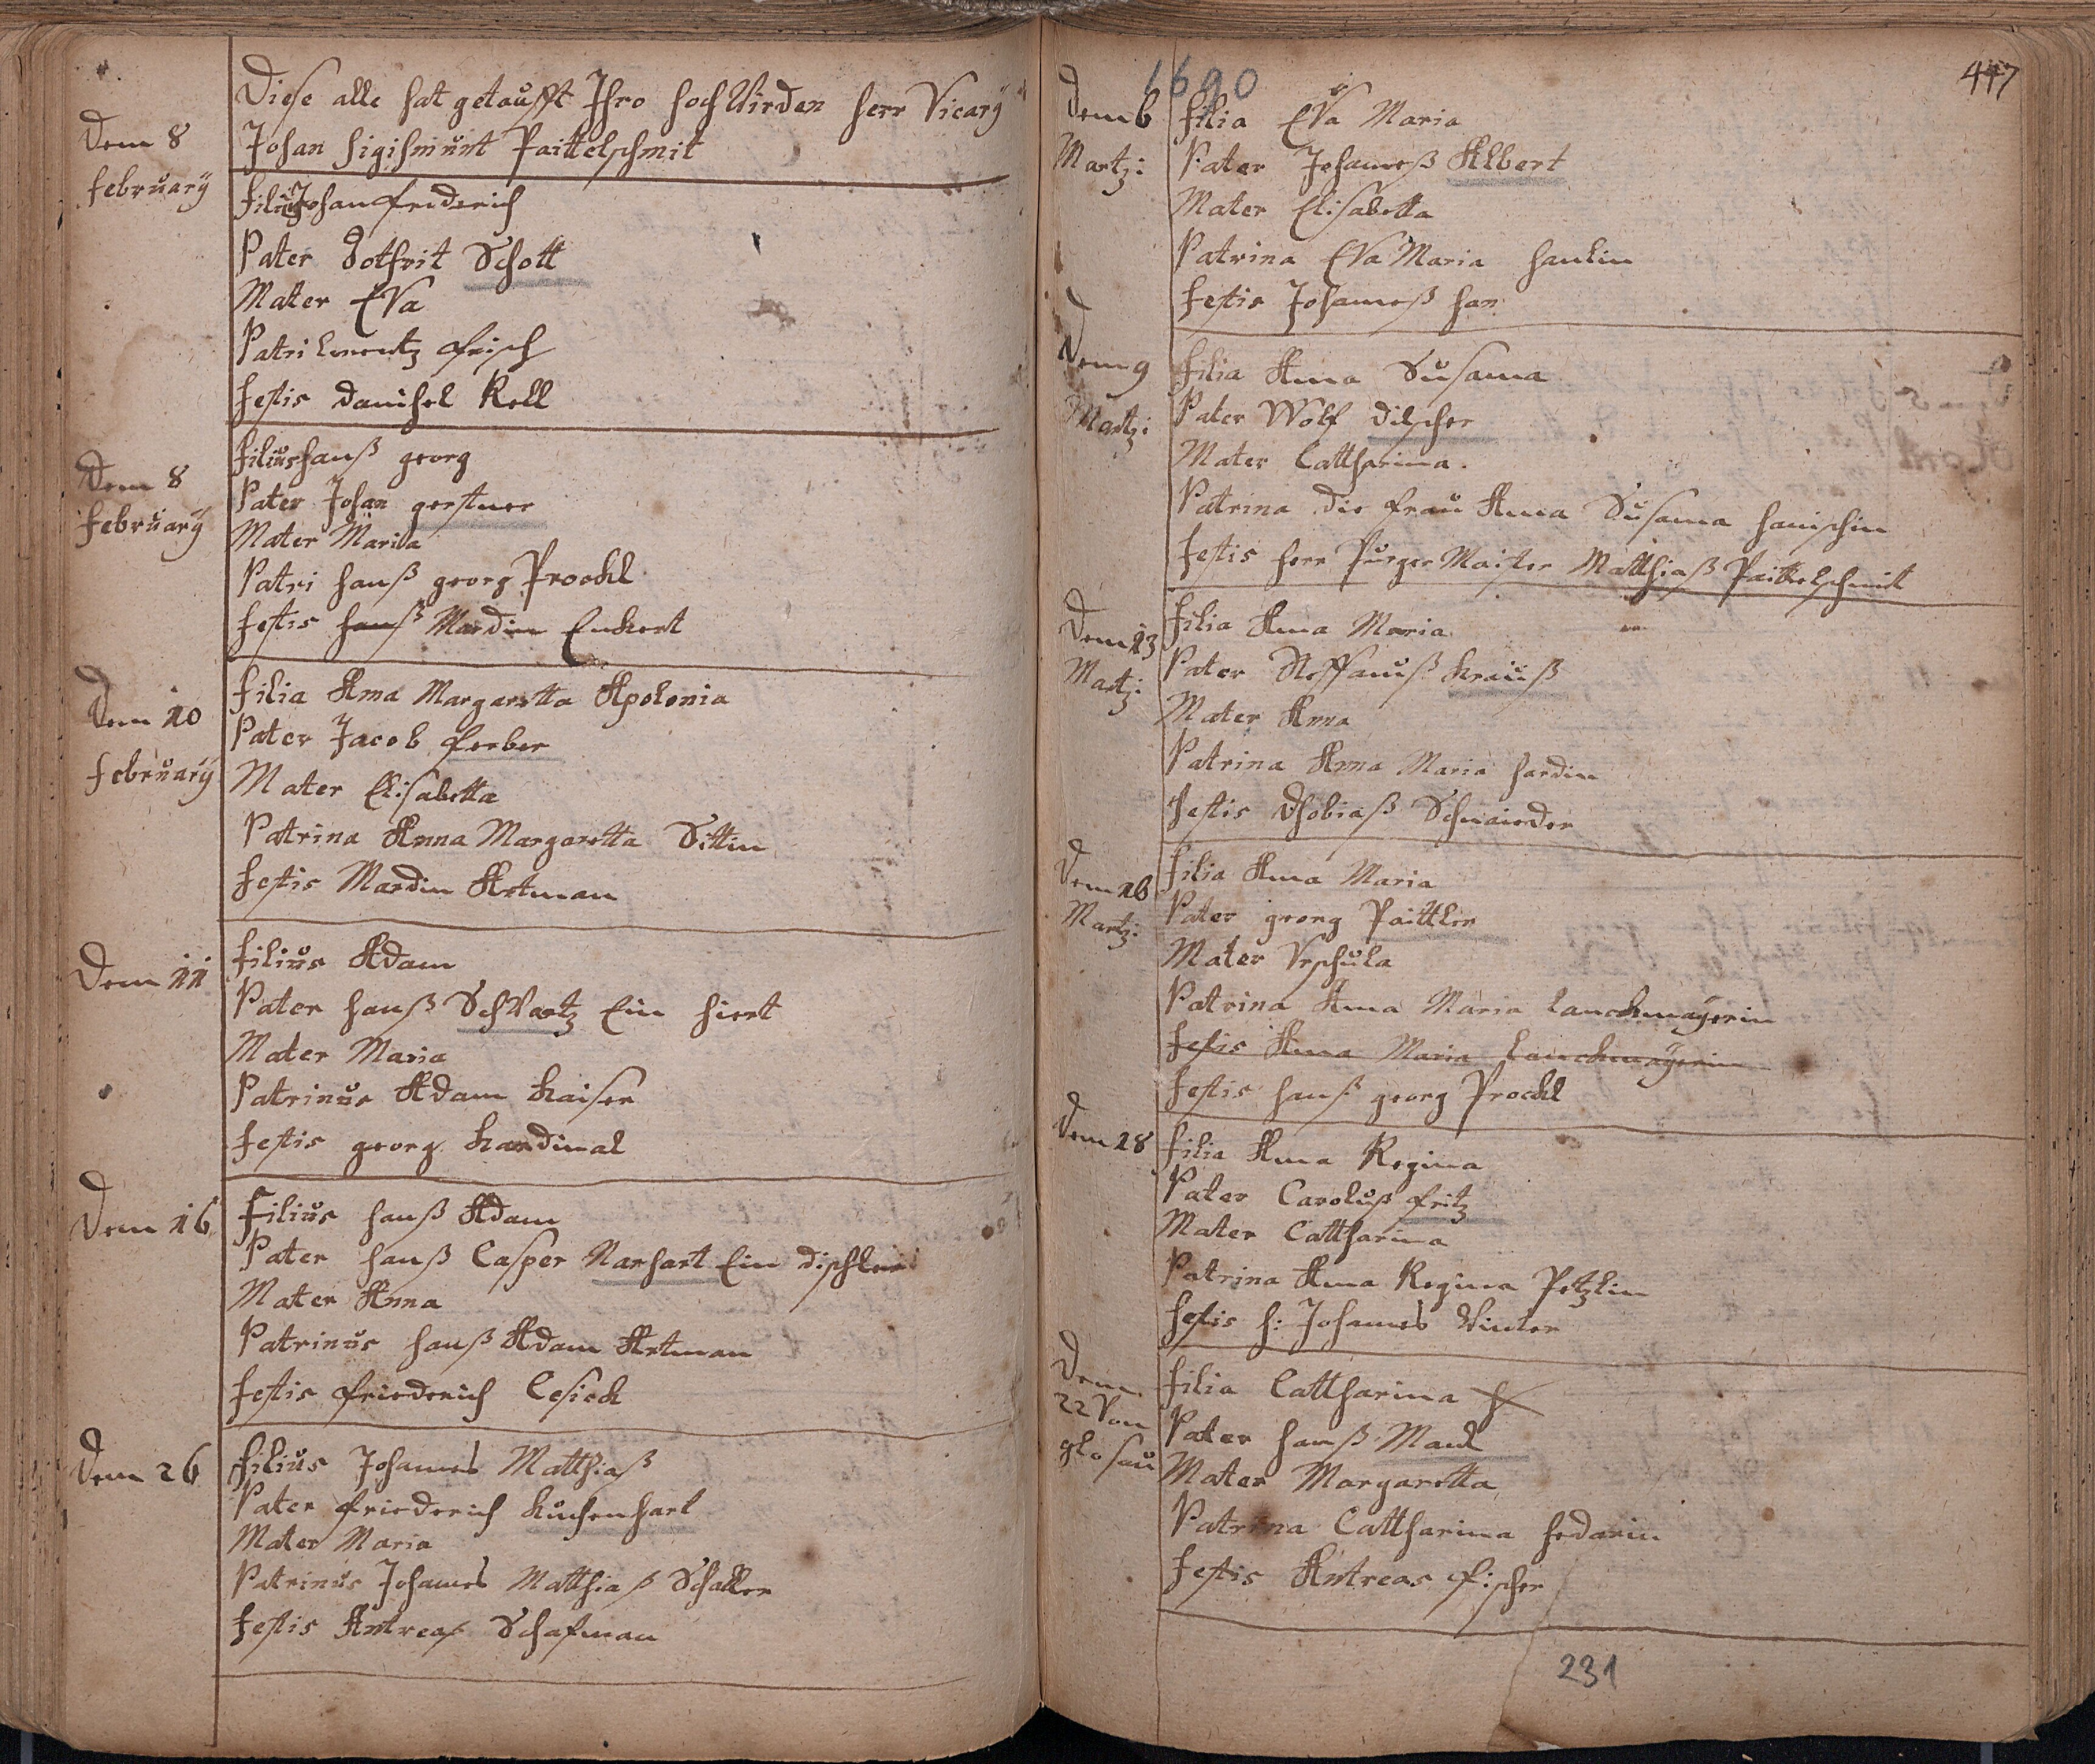 Diese alle hat getaufft Ihro hochWirden herr Vicary
Johan Sigismunt Paittelschmit
Dem 8
february
filius Johan friderich
Pater Gotfrit Schott
Mater EVa
Patri Lorentz frisch
testis Danihel Kell
Dem 8
february
filius hanß georg
Pater Johan gerstner
Mater Maria
Patri hanß georg Prockl
testis hanß Mardin Enckert
Dem 10
february
filia Anna Margaretta Apolonia
Pater Jacob ferber
Mater Elisabetta
Patrina Anna Margaretta Sittin
testis Mardin Artman
Dem 11
filius Adam
Pater hanß SchVartz Ein hiert
Mater Maria
Patrinus Adam Kaiser
testis georg Kardinal
Dem 16
Filius hanß Adam
Pater hanß Casper Narhart Ein dischler
Mater Anna
Patrinus hanß Adam Artman
testis friederich Cesick
Dem 26
filius Johannes Matthiaß
Pater friederich Kuchenhart
Mater Maria
Patrinus Johannes Matthiaß Schaller
testis Antreas Schafman
1690
447
Dem 6
Martzi:
filia EVa Maria
Pater Johaneß Albert
Mater Elisabetta
Patrina EVa Maria hanlin
testis Johaneß han
Dem 9
Martzi:
filia Anna Susanna
Pater Wolf dilscher
Mater Cattharina
Patrina die frau Anna Susanna hanischin
testis herr PurgerMaister Matthiaß Paittelschmit
Dem 13
Martzi:
filia Anna Maria
Pater Steffanuß Krauß
Mater Anna
Patrina Anna Maria hardin
testis Thobiaß Schnaieder
Dem 16
Martzi:
filia Anna Maria
Pater georg Paittler
Mater Vrschula
Patrina Anna Maria Lanckmayerin
testis Anna Maria Lanckmayerin
testis hanß georg Prockl
Dem 18
filia Anna Regina
Pater Caroluß fritz
Mater Cattharina
Patrina Anna Regina Petzlin
testis h: Johannes Winter
Dem
22 Von
glosau
filia Cattharina
Pater hanß Mank
Mater Margaretta
Patrina Cattharina hedarin
testis Antreas fischer
231